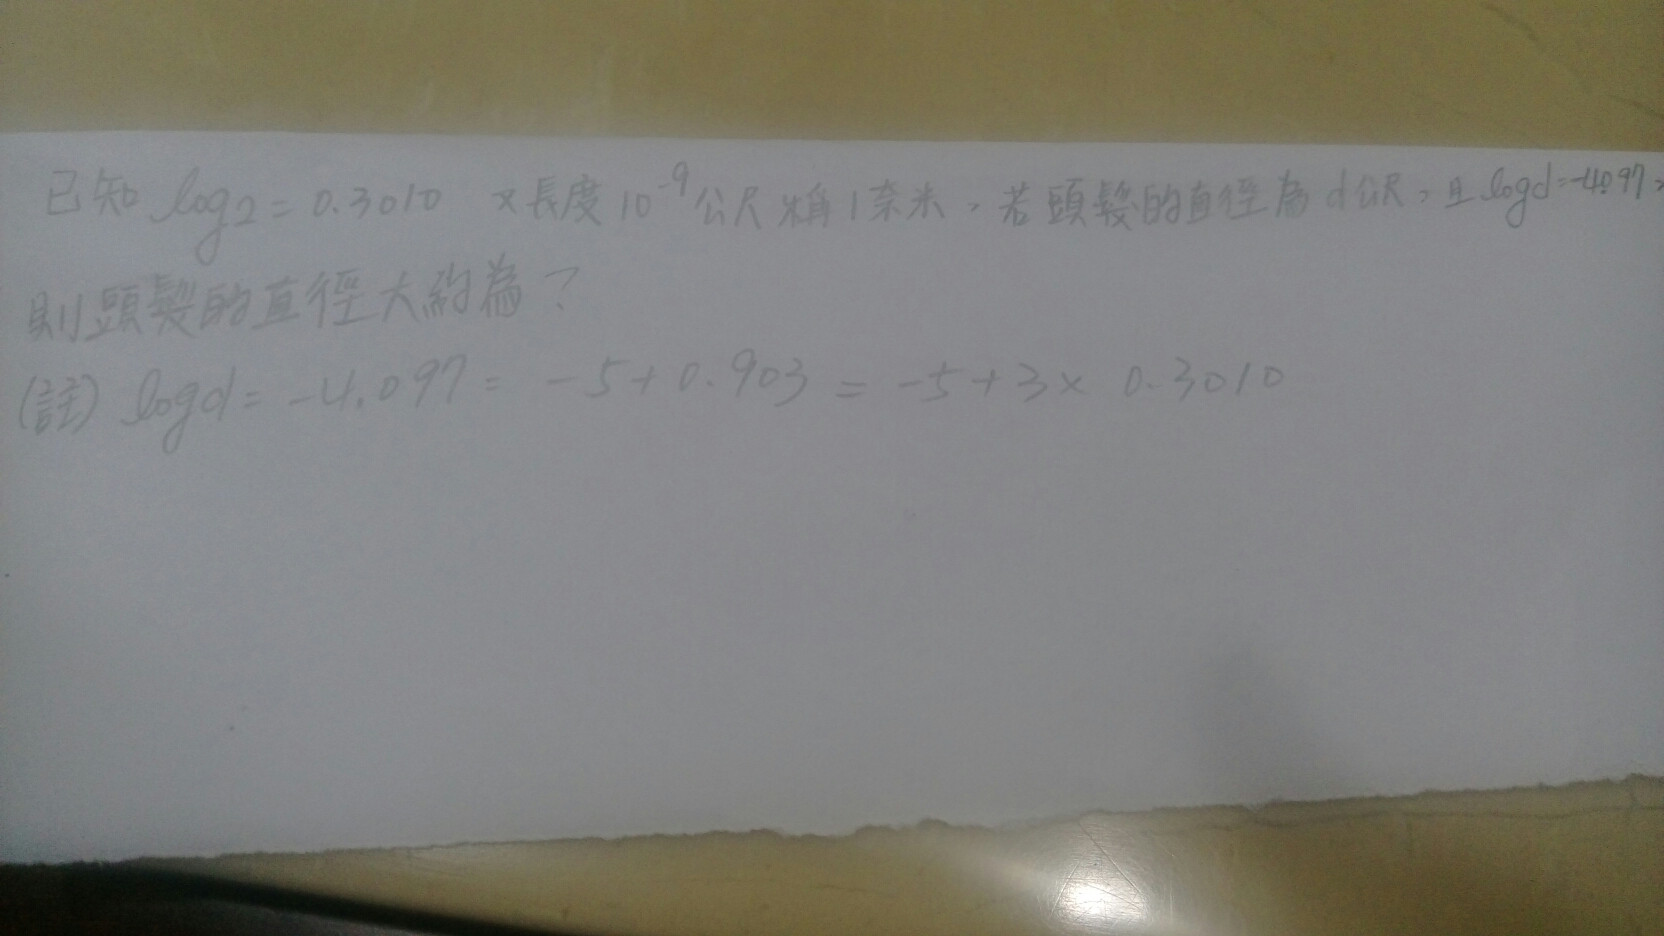 已知 log2 = 0.3010 又長度 10⁻⁹ 公尺稱1奈米，若頭髮的直徑為 d 公尺，且 logd=-4.097，
則頭髮的直徑大約為？
(註) logd = -4.097 = -5+0.903 = -5+3× 0.3010